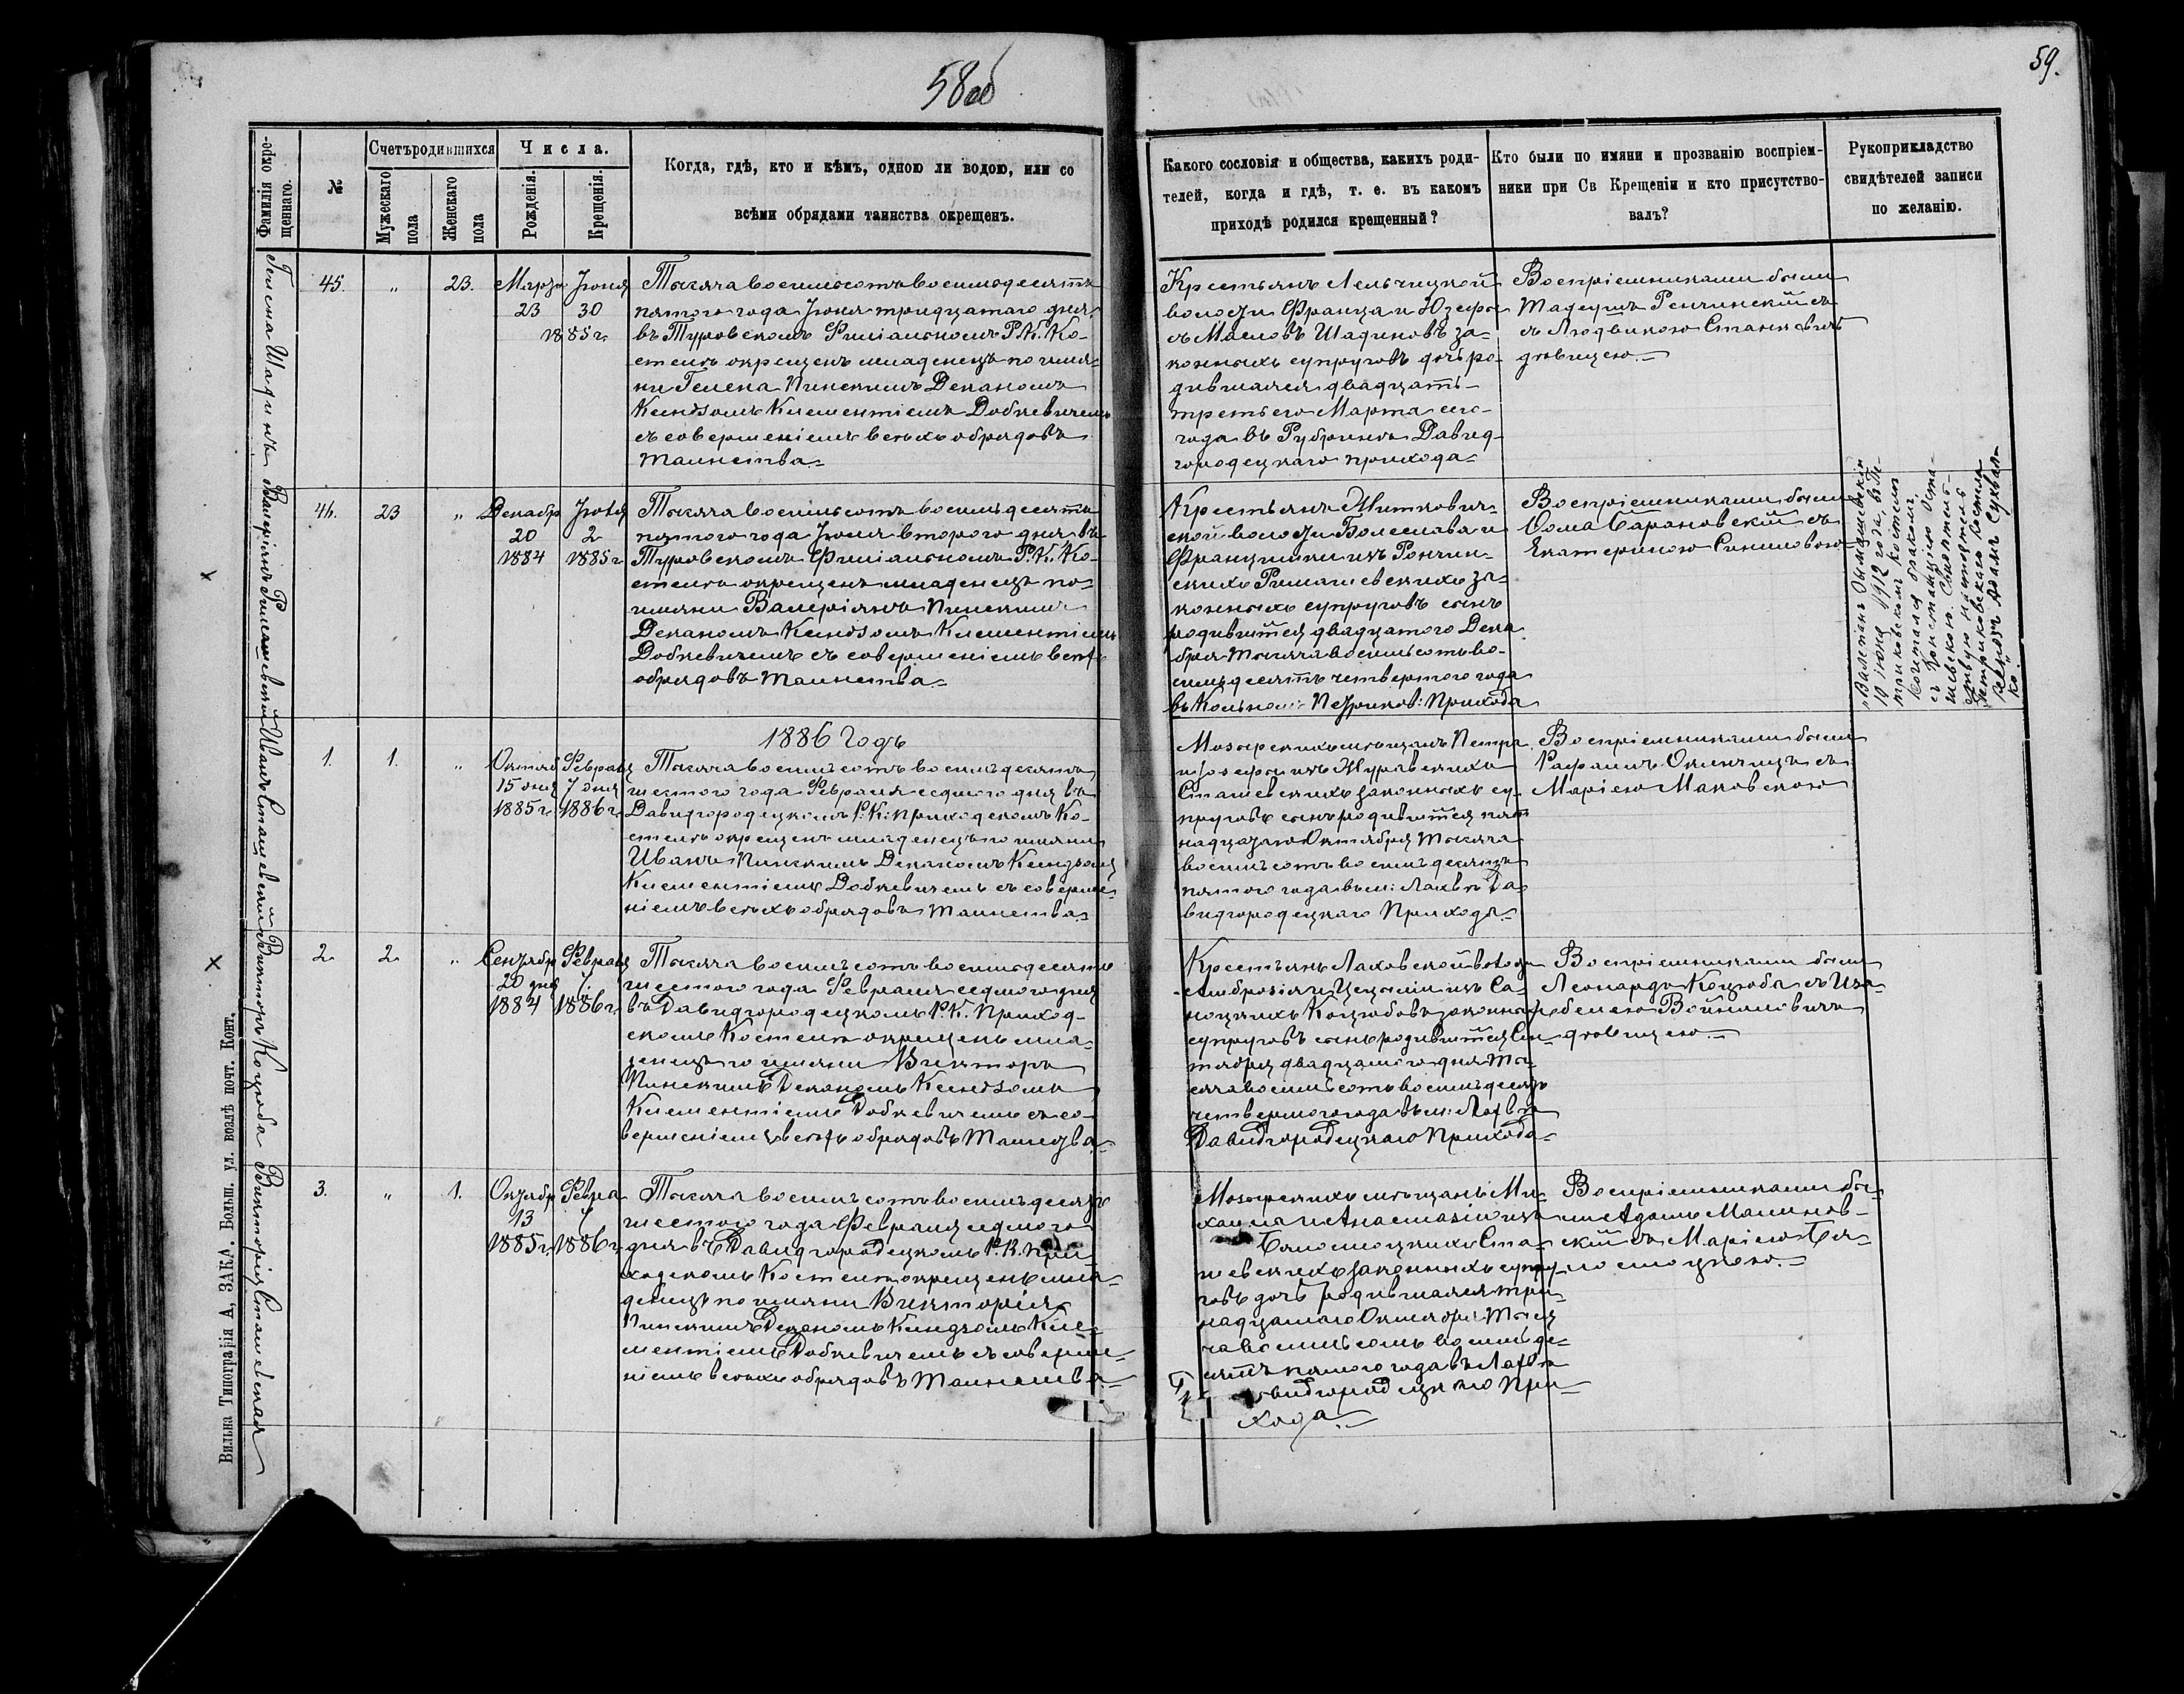 58об
59.
Фамилія окре-
щеннаго.
№
Счетъ родившихся
Мужескаго
пола
Женскаго
пола
Числа.
Рожденія.
Крещенія.
Когда, гдѣ, кто и кѣмъ, одною ли водою, или со
всѣми обрядами таинства окрещенъ.
Какого сословія и общества, какихъ роди-
телей, когда и гдѣ, т. е. въ какомъ
приходѣ родился крещенный?
Кто были по имяни и прозванію воспріем-
ники при Св Крещеніи и кто присутство-
валъ?
Рукоприкладство
свидѣтелей записи
по желанію.
Гелена Шадинъ
45.
"
23.
Марта
23
Іюня
30
1885 г.
Тысяча восемьсотъ восемьдесятъ
пятого года Іюня тридцатаго дня
въ Туровскомъ Филіальномъ Р. К. Ко-
стелѣ окрещенъ младенецъ по имя-
ни Гелена Пинскимъ Деканомъ
Ксіндзомъ Климентіемъ Добкевичемъ
съ совершеніемъ всѣхъ обрядовъ
таинства.
Крестьянъ Лельчицкой
волости Франца и Юзефы
съ Масловъ Шадиновъ за-
конныхъ супруговъ дочь ро-
дившаяся двадцать
третьего Марта сего
года въ Рубринѣ Давид-
городецкаго прихода
Воспріемниками были
Тадеушъ Ренчинскій съ
съ Людвикою Станкевичъ
дѣвицею.
Валеріянъ Рымашевскій
46.
23
"
Декабр
20
1884
Іюня
2
1885 г
Тысяча восемьсотъ восемьдесятъ
пятого года Іюня второго дня въ
Туровскомъ Филіальномъ Р. К. Ко-
стелѣ окрещенъ младенецъ по-
имяни Валеріянъ Пинскимъ
Деканомъ Ксіндзомъ Климентіемъ
Добкевичемъ съ совершеніемъ всѣхъ
обрядовъ таинства.
Крестьянъ Житкович-
ской волости Болеслава и
Францишки изъ Рончин-
скихъ Римашевскихъ за-
конныхъ супруговъ сынъ
родившійся двадцатого Дека
бря тысяча восемьсотъ во-
семьдесятъ четвертого года
въ Кольномъ Петриков: Прихода
Воспріемниками были
Фома Барановскій съ
Екатериною Синиловою
"Валетанъ Рымашевскій
10 іюня 1912 года, въ Пе-
триковскомъ костелѣ
сочетался бракомъ
съ Констанціею Оста-
шевскою. Свидѣтель-
ствую настоятель
Петриковскаго костела
ксендзъ Адамъ
1886 Годъ
Иванъ Сташевскій
1.
1.
"
Октяб
15 дня
1885 г
Февраля
7 дня
1886 г
Тысяча восемьсотъ восемьдесятъ
шестого года Февраля седмого дня въ
Давидгородецкомъ Р: К: Приходскомъ Ко-
стелѣ окрещенъ младенецъ по имяни
Иванъ Пинскимъ Деканомъ Ксіндзомъ
Климентіемъ Добкевичемъ съ соверше
ніемъ всѣхъ обрядовъ таинства.
Мозырскихъ мѣщанъ Петра
и Іозефы изъ Журавскихъ
Сташевскихъ законныхъ су-
пруговъ сынъ родившійся пят
надцатаго Октября тысяча
восемьсотъ восемьдесятъ
пятого года въ м: Лахвѣ Да-
видгородецкаго Прихода.
Воспріемниками были
Рафаилъ Окинчицъ съ
Маріею Маковскою
Викторъ Коцюба
2.
2.
"
Сентябр
20 дня
1884
Февраля
7.
1886 г
Тысяча восемьсотъ восемьдесятъ
шестого года Февраля седмого дня
въ Давидгородецкомъ Р. К. Приход-
скомъ Костелѣ окрещенъ мла-
денецъ по имяни Викторъ
Пинскимъ Деканомъ Ксіндзомъ
Климентіемъ Добкевичемъ съ со-
вершеніемъ всѣхъ обрядовъ таинства.
Крестьянъ Лаховской волости
Амброзія и Цециліи изъ Са-
ноцкихъ Коцюбовъ законныхъ
супруговъ сынъ родившійся Сен-
тября двадцатого дня ты-
сяча восемьсотъ восемьдесятъ
четвертого года въ м: Лахвѣ
Давидгородецкаго Прихода
Воспріемниками были
Леонардъ Коцюба съ Иза-
белею Войниловичъ
дѣвицею.
Викторія Сташевская
3.
"
1.
Октябр
13
1885 г
Февра
7
1886 г
Тысяча восемьсотъ восемьдесятъ
шестого года Февраля седмого
дня въ Давидгородецкомъ Р. К. При-
ходскомъ Костелѣ окрещенъ мла-
денецъ по имяни Викторія
Пинскимъ Деканомъ Ксіндзомъ Кле-
ментіемъ Добкевичемъ съ соверше-
ніемъ всѣхъ обрядовъ таинства
Мозырскихъ мѣщанъ Ми-
хаила и Анастазіи изъ
Бяломоцкихъ Ста-
шевскихъ законныхъ супру-
говъ дочь родившаяся три-
надцатаго Октября тыся
ча восемьсотъ восемьде-
сятъ пятого года въ Лахвѣ
Давидгородецкаго При-
хода.
Воспріемниками бы-
ли Адамъ Малинов-
скій съ Маріею Бя-
ломоцкою.
Вильна Типографія А, ЗАКА. Больш. ул. возлѣ почт. Конт.